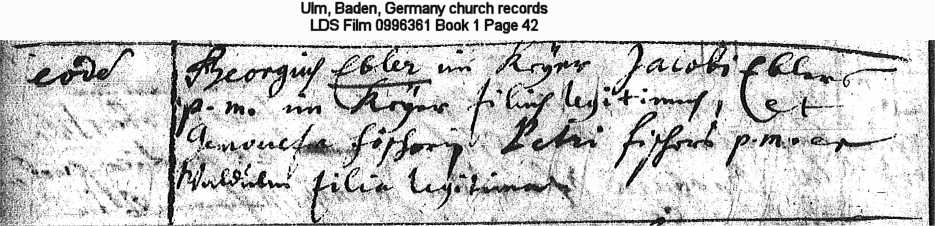 Ulm, Baden, Germany church records
LDS Film 0996361 Book 1 Page 42
eōdē Georgius Ebler im Kržer Jacobi Eblers
p.m. im filius legitimus, et
Genovefa Petri fischers p.m. ex
Waldulm filia legitima